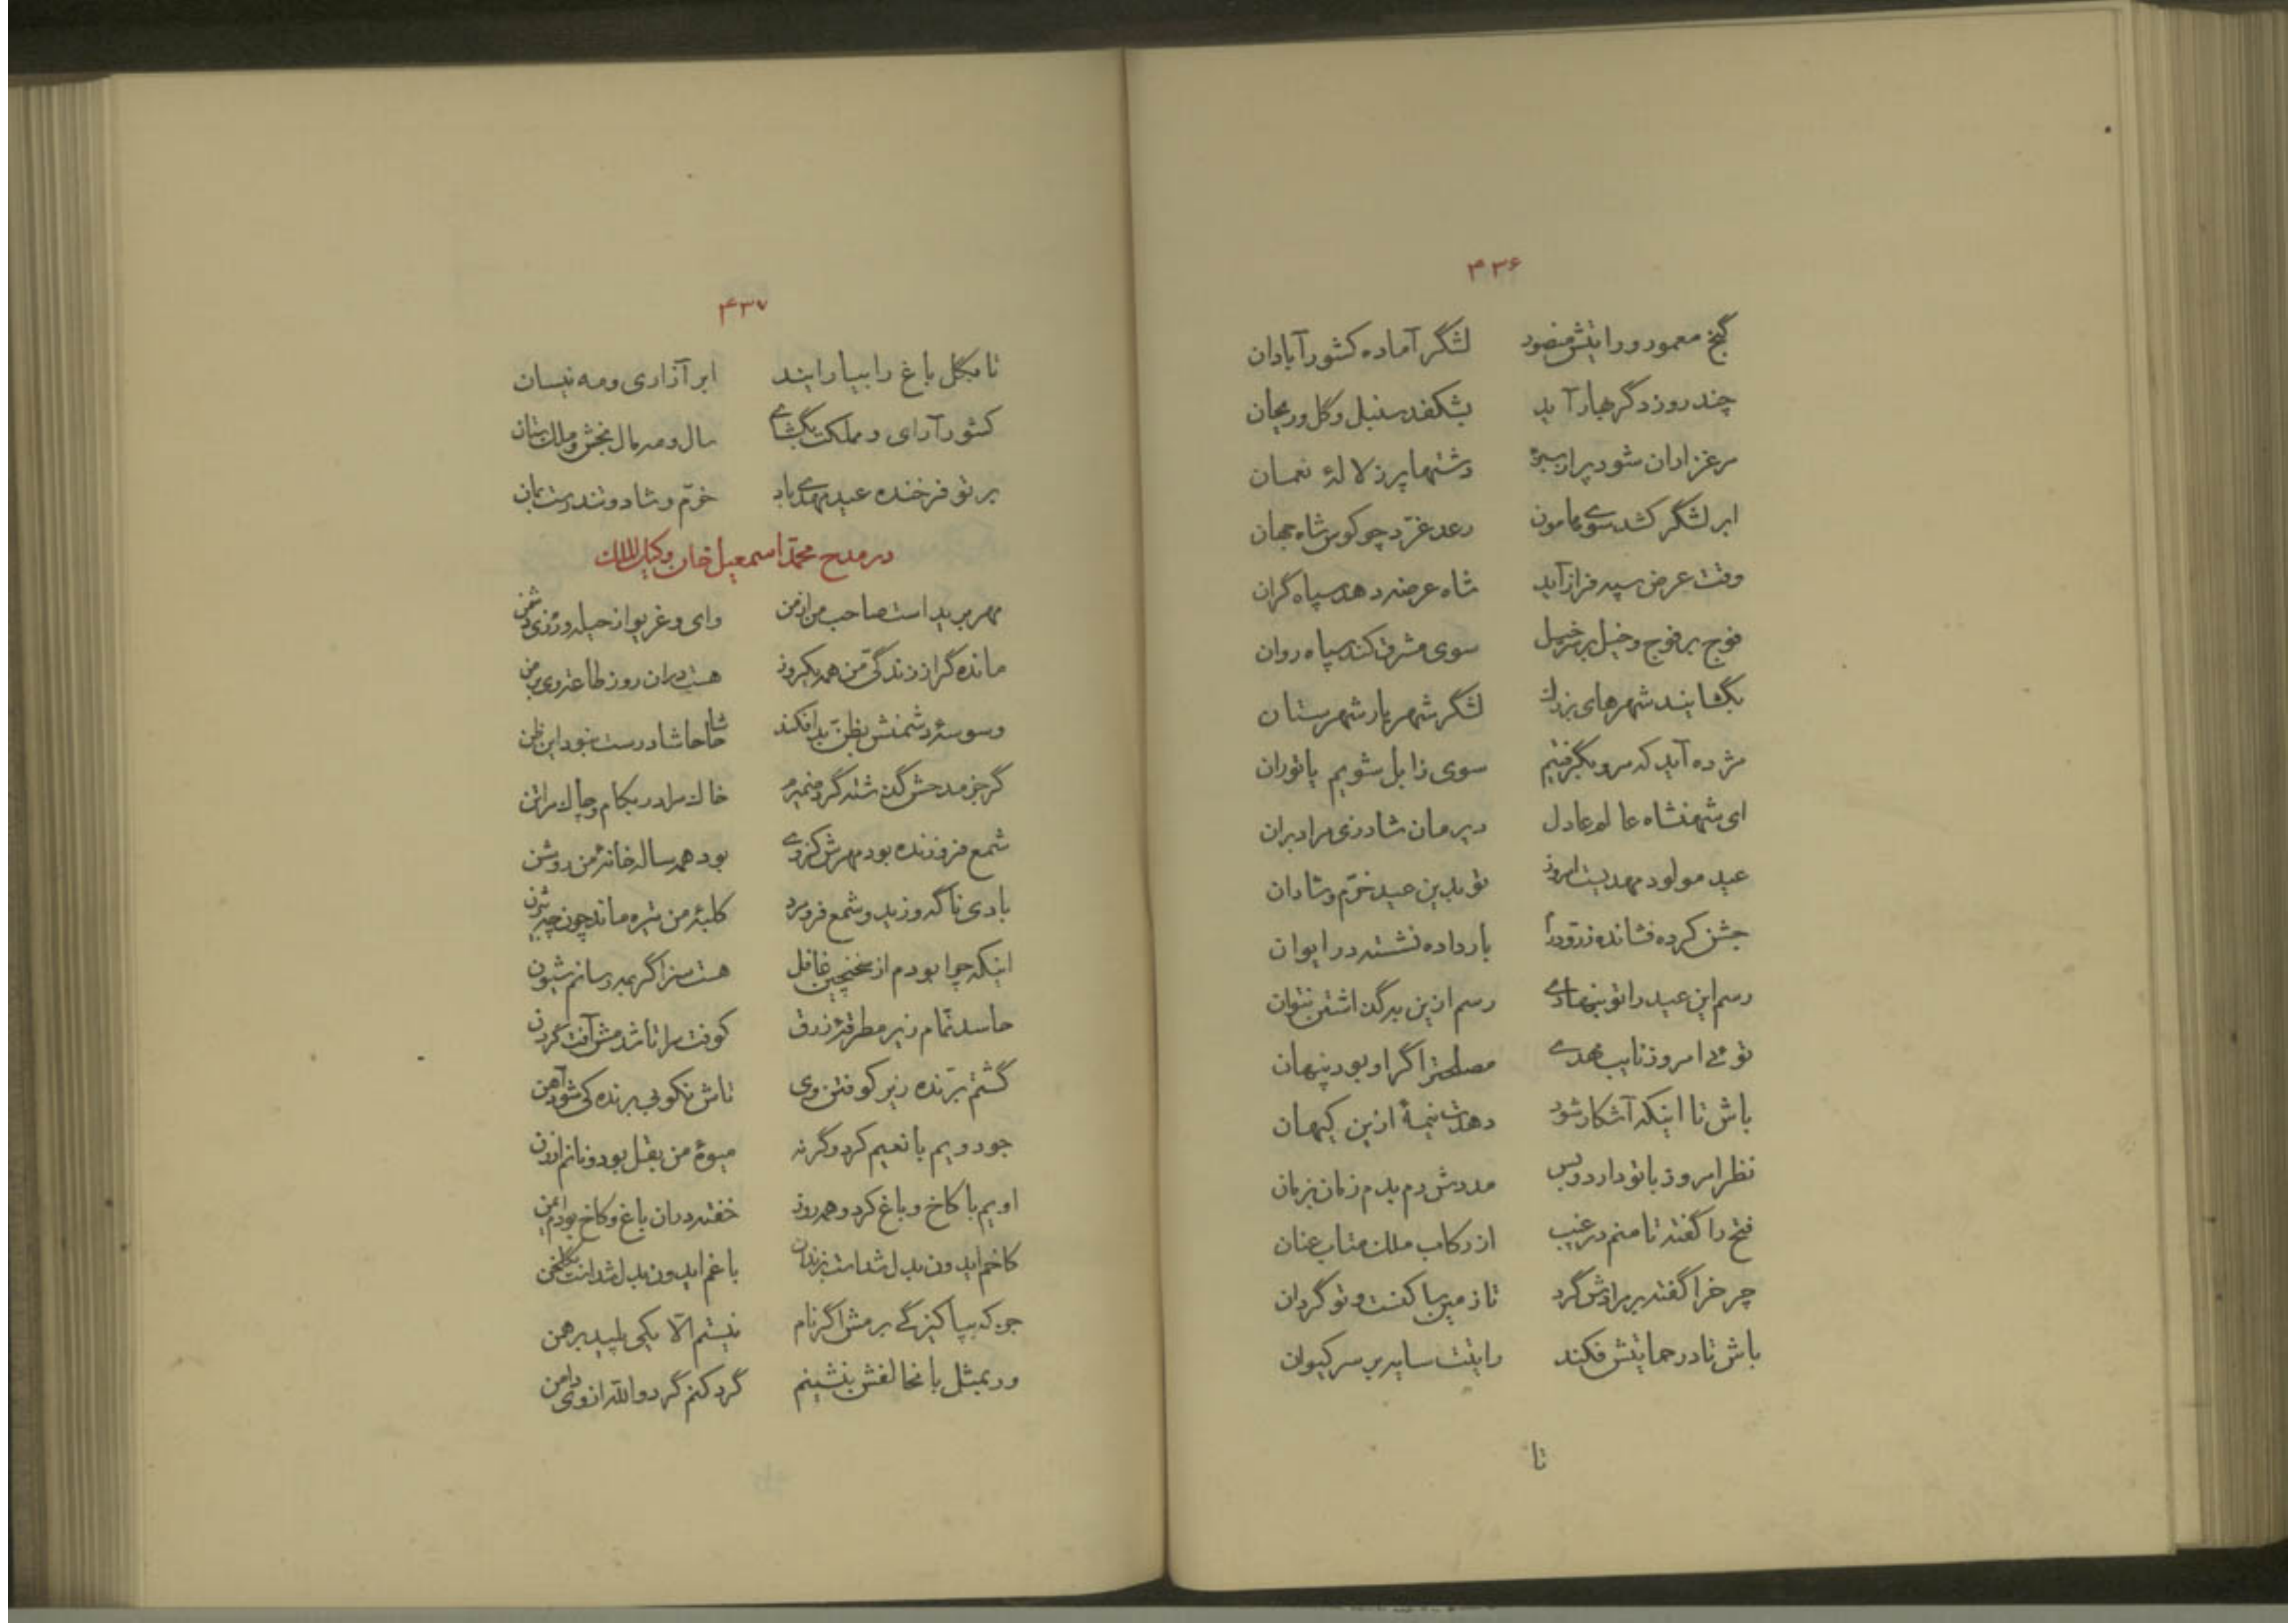 ۴۳۶
گنج معمور و رایتش منصور لشگر آماده کشور آبادان
چند روز دگر بهار آید بشکفد سنبل و گل و ریحان
مرغزاران شود پر از سبزه دشتها پر ز لالهٔ نعمان
ابر لشگر کشد سوی هامون رعد غرّد چو کوس شاه جهان
وقت عرض سپه فراز آید شاه عرضه دهد سپاه گران
فوج بر فوج و خیل بر خیل سوی مشرق کند سپاه روان
بگشایند شهرهای بزرك لشگر شهریار شهرستان
مژده آید که مرو بگرفتیم سوی زابل شویم یا توران
ای شهنشاه عالم عادل دیر مان شاد زی مرا دیران
عید مولود مهدیست امروز تو بدین عید خرّم و شادان
جشن کرده فشانده زر و درا بار داده نشسته در ایوان
رسم این عید را تو بنهادی رسم ازین به گذاشتن نتوان
توئی امروز نایب مهدی مصلحت را گر او بود پنهان
باش تا اینکه آشکار شود دهدت نیمهٔ ازین کیهان
نظر امروز با تو دارد و بس مددش دم بدم زمان بزمان
فتح را گفته تا منم در غیب از رکاب ملك متاب عنان
چرخ را گفته بر مرادش گرد تا زمین ساکنست و تو گردان
باش تا در حمایتش فکند رایتت سایه بر سر کیوان
تا
۴۳۷
تا بگل باغ را بیارایند ابر آزاری و مه نیسان
کشور آرای و مملکت بگشای سال و مه مال بخش و ملك ستان
بر تو فرخنده عید مهدی باد خرّم و شاد و تندرست بمان
در مدح محمّد اسمعیل خان وکیل الملك
مهر برید است صاحب من از من وای و غریو از حیله ورزی دشمن
مانده گر از زندگیّ من همه یکروز هست در آن روز طاعتِ وی بر من
وسوسهٔ دشمنش بظنّ بد افکند حاشا حاشا درست نبود این ظن
گر جز مدحش گذشته گرد ضمیرم خاك مرا در بکام و چاك مرا تن
شمع فروزنده بود مهرش کز وی بود همه ساله خانهٔ من روشن
بادی ناگه وزید و شمع فرو مرد کلبهٔ من تیره ماند چون چه بیژن
اینکه چرا بودم از سخنچین غافل هست سزا گر بمه رسانم شیون
حاسد نمّام زیر مطرقهٔ زرق کوفت مرا تا شدمش آفت گردن
گشتم برّنده زیر کوفتن وی تاش نکوبی برنده کی شود آهن
جود ویم با نعیم کرد و گرنه میوهٔ من بقل بود و نانم ارزن
اویم با کاخ و باغ کرد و همه روز خفته در آن باغ و کاخ بودم ایمن
کاخم ایدون بدل شداست بزندان باغم ایدون بدل شداست بگلخن
جو که بپاکیزگی برمش اگر نام نیستم الّا یکی پلید برهمن
ور بمثل با مخالفش بنشینم گرد کنم گرد والله از وی دامن